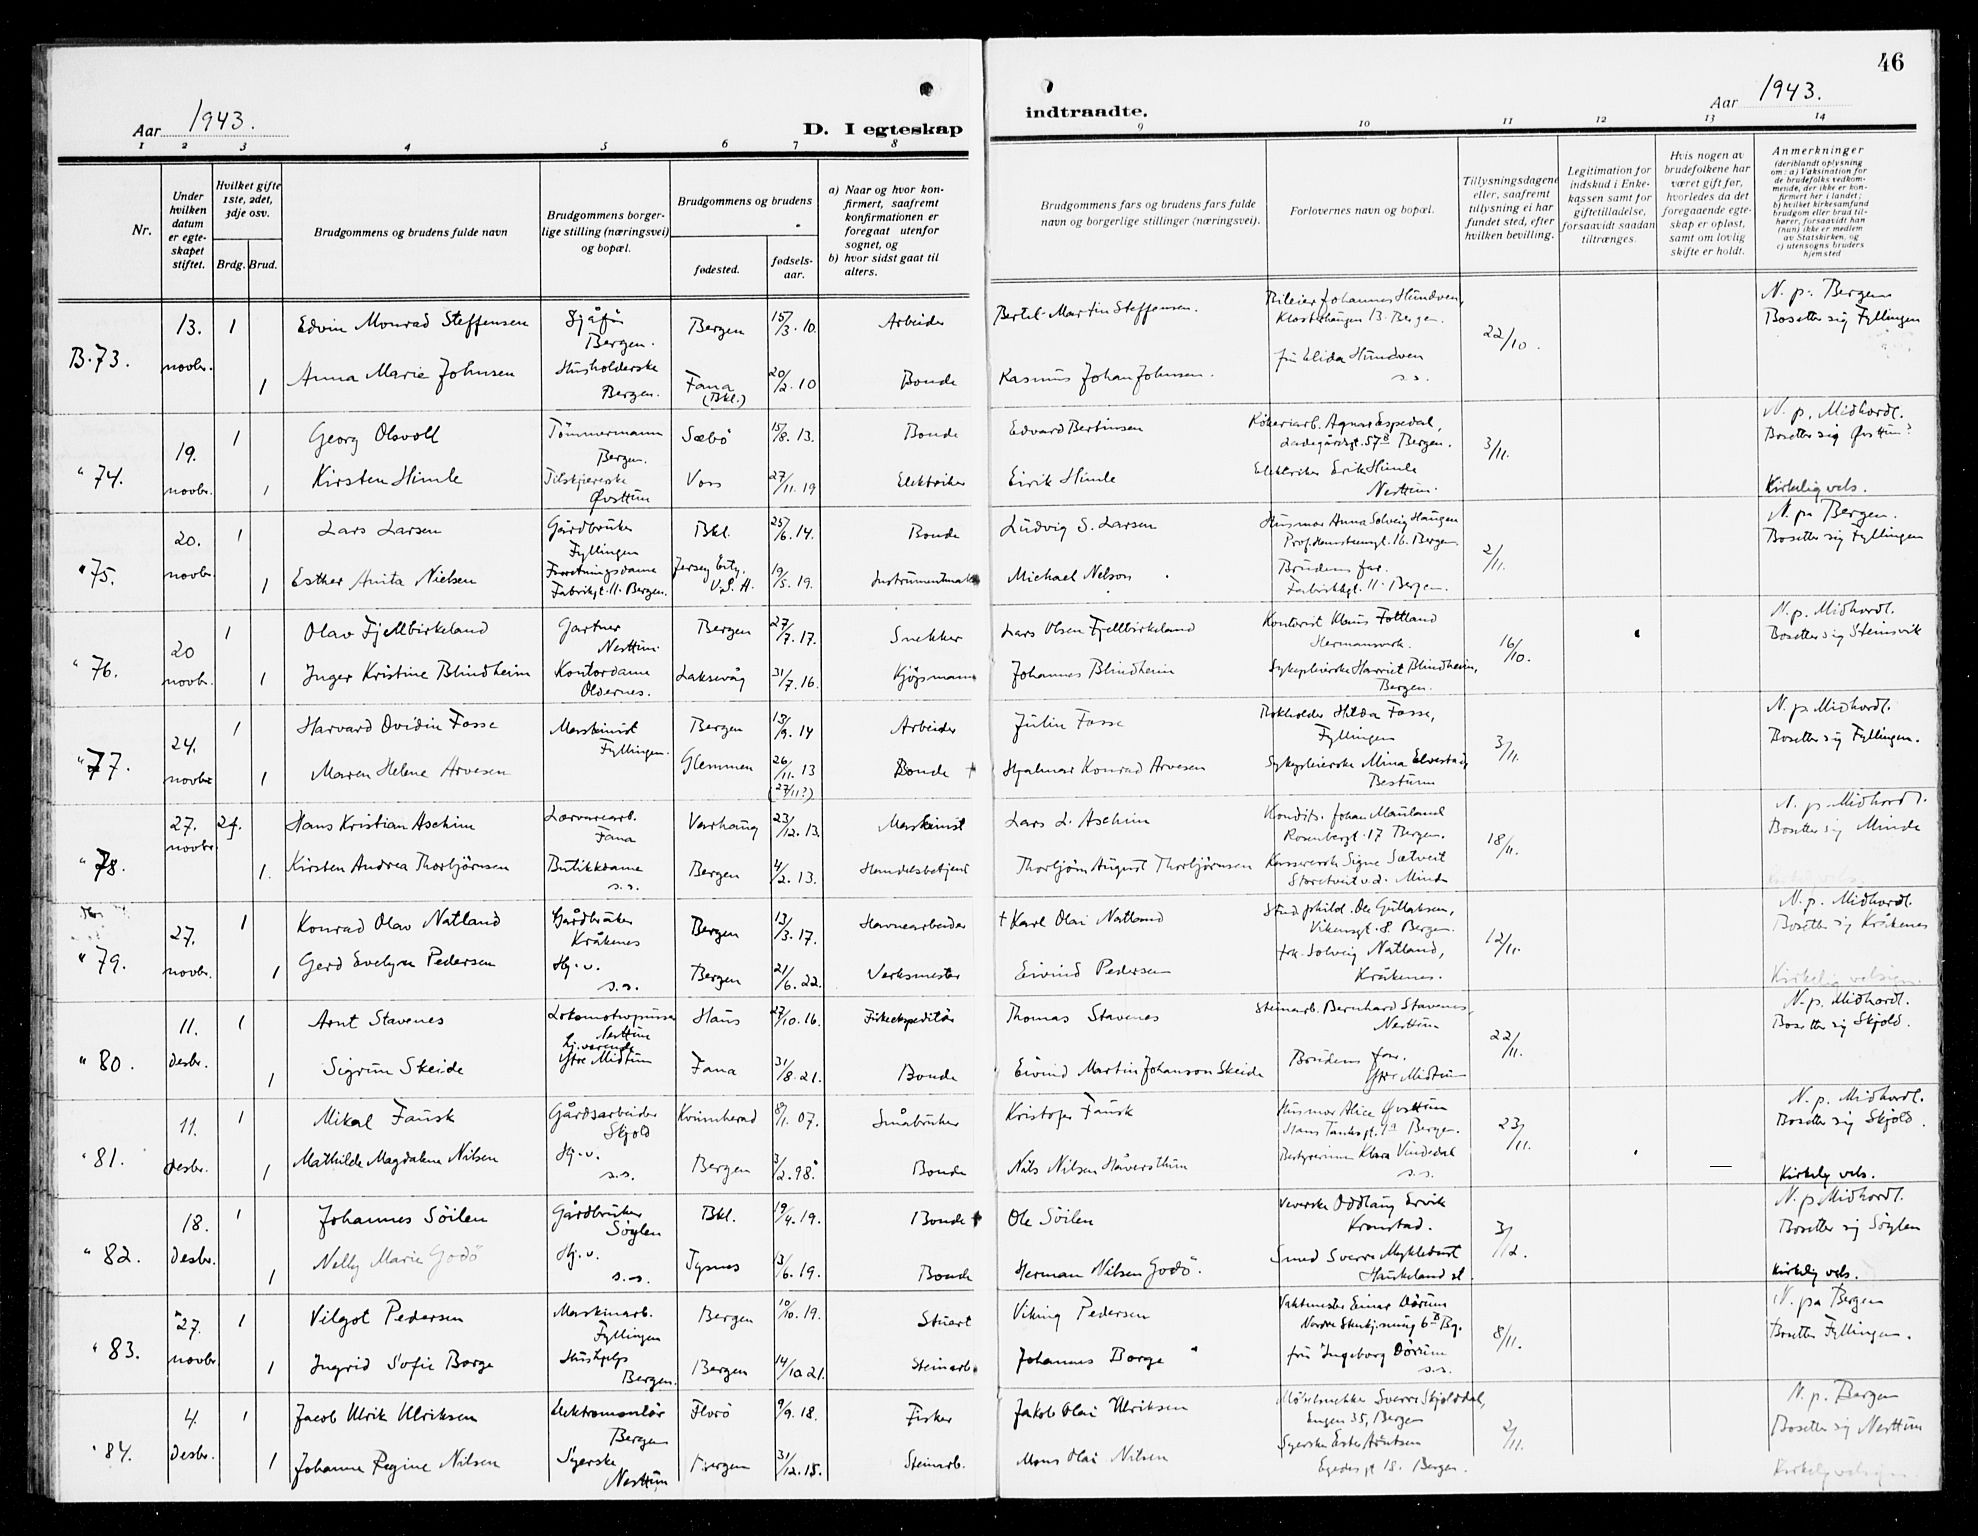 46
Aar 1943.
D. I egteskap
indtraadte.
Aar 1943.
1 2 3 4 5 6 7 8 9 10 11 12 13 14
Nr.
Under hvilken datum er egteskapet stiftet.
Hvilket gifte 1ste, 2det, 3dje osv.
Brdg. Brud.
Brudgommens og brudens fulde navn
Brudgommens borgerlige stilling (næringsvei) og bopæl.
Brudgommens og brudens
fødested.
fødselsaar.
a) Naar og hvor konfirmert, saafremt konfirmationen er foregaat utenfor sognet, og
b) hvor sidst gaat til alters.
Brudgommens fars og brudens fars fulde navn og borgerlige stillinger (næringsvei).
Forlovernes navn og bopæl.
Tillysningsdagene eller, saafremt tillysning ei har fundet sted, efter hvilken bevilling.
Legitimation for indskud i Enkekassen samt for giftetilladelse, forsaavidt saadan tiltrænges.
Hvis nogen av brudefolkene har været gift før, hvorledes da det foregaaende egteskap er opløst, samt om lovlig skifte er holdt.
Anmerkninger
(deriblandt oplysning om: a) Vaksination for de brudefolks vedkommende, der ikke er konfirmert her i landet; b) hvilket kirkesamfund brudgom eller brud tilhører, forsaavidt han (hun) ikke er medlem av Statskirken, og c) utensogns bruders hjemsted
B.73. 13. novbr. 1 Edvin Monrad Steffensen Sjåfør Bergen. Bergen 15/3.10. Arbeider Bertel Martin Steffensen. Bileier Johannes Hundven, Klosterhaugen 13. Bergen. 22/10. N. p. Bergen Bosetter sig Fyllingen
1 Anna Marie Johnsen Husholderske Bergen. Fana (Bkl.) 20/2.10 Bonde Rasmus Johan Johnsen. fru Elida Hundven s.s.
" 74. 19. novbr. 1 Georg Olsvoll Tømmermann Bergen. Sæbø 15/8.13. Bonde Edvard Bertinsen Agnar Espedal, Ladegårdsgt. 57 Bergen. 3/11. N. p. Midhordl. Bosetter sig Øvsttun?
1 Kirsten Himle Tilskjærerske Øvsttun Voss 27/11.19 Elektriker Eirik Himle Elektriker Erik Himle Nesttun. Kirkelig vels.
" 75. 20. novbr. 1 Lars Larsen Gårdbruker Fyllingen Bkl. 25/6.14. Bonde Ludvig S. Larsen Husmor Anna Solveig Haugen Prof. Hansteensgt. 16. Bergen 2/11. N. p. Bergen. Bosetter sig Fyllingen
1 Esther Anita Nielsen Forretningsdame Fabrikgt. 11. Bergen. Jersey City, U.S.A. 19/5.19. Instrumentmak. Michael Nelson Brudens far. Fabrikkgt. 11. Bergen.
" 76. 20 novbr. 1 Olav Fjellbirkeland Gartner Nesttun Bergen 27/7.17. Snekker Lars Olsen Fjellbirkeland Kontorist Klaus Foltland Hermansverk. 16/10. N. p. Midhordl. Bosetter sig Steinsvik
1 Inger Kristine Blindheim Kontordame Oldernes. Laksevåg 31/7.16. Kjøpmann Johannes Blindheim Sykepleierske Harriet Blindheim, Bergen.
" 77. 24. novbr. 1 Harvard Ovidin Fosse Maskinist Fyllingen. Bergen 13/9.14 Arbeider Julin Fosse Bokholder Hilda Fosse, Fyllingen 3/11. N. p. Midhordl. Bosetter sig Fyllingen.
1 Maren Helene Arvesen Glemmen 26/11.13 (27/11?) Bonde Hjalmar Konrad Arvesen Sykepleierske Mina Elvestad, Bestum
" 78. 27. novbr. 2g. Hans Kristian Aschim Lærvarearb. Fana Varhaug 23/12.13. Maskinist Lars L. Aschim Kondit. Johan Mauland Rosenbergt. 17 Bergen. 18/11. N. p. Midhordl. Bosetter sig Minde
1. Kirsten Andrea Thorbjørnsen Butikkdame s.s. Bergen 4/2.13. Handelsbetjent Thorbjørn August Thorbjørnsen Kassererske Signe Sætveit Storetveit v.d. Minde
" 79. 27. novbr. 1 Konrad Olav Natland Gårdbruker Kråkenes Bergen 13/3.17. Havnearbeider + Karl Olai Natland Stud. philol. Ole Gullaksen, Vikensgt. 8. Bergen. 12/11. N. p. Midhordl. Bosetter sig Kråkenes
1 Gerd Evelyn Pedersen Hj. v. s.s. Bergen 21/6.22. Verksmester Eivind Pedersen frk. Solveig Natland, Kråkenes. Kirkelig velsign.
" 80. 11. desbr. 1 Arnt Stavenes Lokomotivpusser Nesttun Haus 27/10.16. Fiskeekspeditør Thomas Stavenes Steinarb. Bernhard Stavenes, Nesttun 22/11. N. p. Midhordl. Bosetter sig Skjold.
1 Sigrun Skeide hj. værende Ytre Midtun Fana 31/8.21. Bonde Eivind Martin Johanson Skeide Brudens far. Ytre Midtun
" 81. 11. desbr. 1 Mikal Fausk Gårdsarbeider Skjold Kvinnherad 8/1.07. Småbruker Kristofer Fausk Husmor Alice Øvsttun Hans Tanksgt. 9a Bergen. 23/11. N. p. Midhordl. Bosetter sig Skjold.
1 Mathilde Magdalene Nilsen Hj. v. s.s. Bergen 3/2.98. Bonde Nils Nilsen Håversthun Bestyrerinne Klara Vindedal s.s. — Kirkelig vels.
" 82. 18. desbr. 1 Johannes Söilen Gårdbruker Søylen Bkl. 19/4.19. Bonde Ole Söilen Veverske Oddlaug Ervik Kronstad. 3/12. N. p Midhordl. Bosetter sig Søylen
1 Nelly Marie Godö Hj. v. s.s. Tysnes 3/6.19. Bonde Herman Nilsen Godö. Smed Sverre Myklebust Haukeland st. Kirkelig vels.
" 83. 27. novbr. 1 Vilgot Pedersen Maskinarb. Fyllingen Bergen 10/10.19. Stuert Viking Pedersen Vaktmester Einar Dørum 6B Bg. 8/11. N. pa Bergen Bosetter Fyllingen.
1 Ingrid Sofie Borge Hushjelp Bergen. Bergen 14/10 21. Steinarb. Johannes Borge fru Ingeborg Dørum s.s.
" 84. 4. desbr. 1 Jacob Ulrik Ulriksen Elektromontør Bergen Florö 9/9.18. Fisker Jakob Olai Ulriksen Møbelsnekker Sverre Skjolddal, Engen 35, Bergen 2/11. N. p. Bergen Bosetter sig Nesttun
1 Johanne Regine Nilsen Syerske Nesttun Bergen 31/12.18. Steinarb. Mons Olai Nilsen Syerske Ester Arntsen Egedesgt 18. Bergen. Kirkelig velsign.